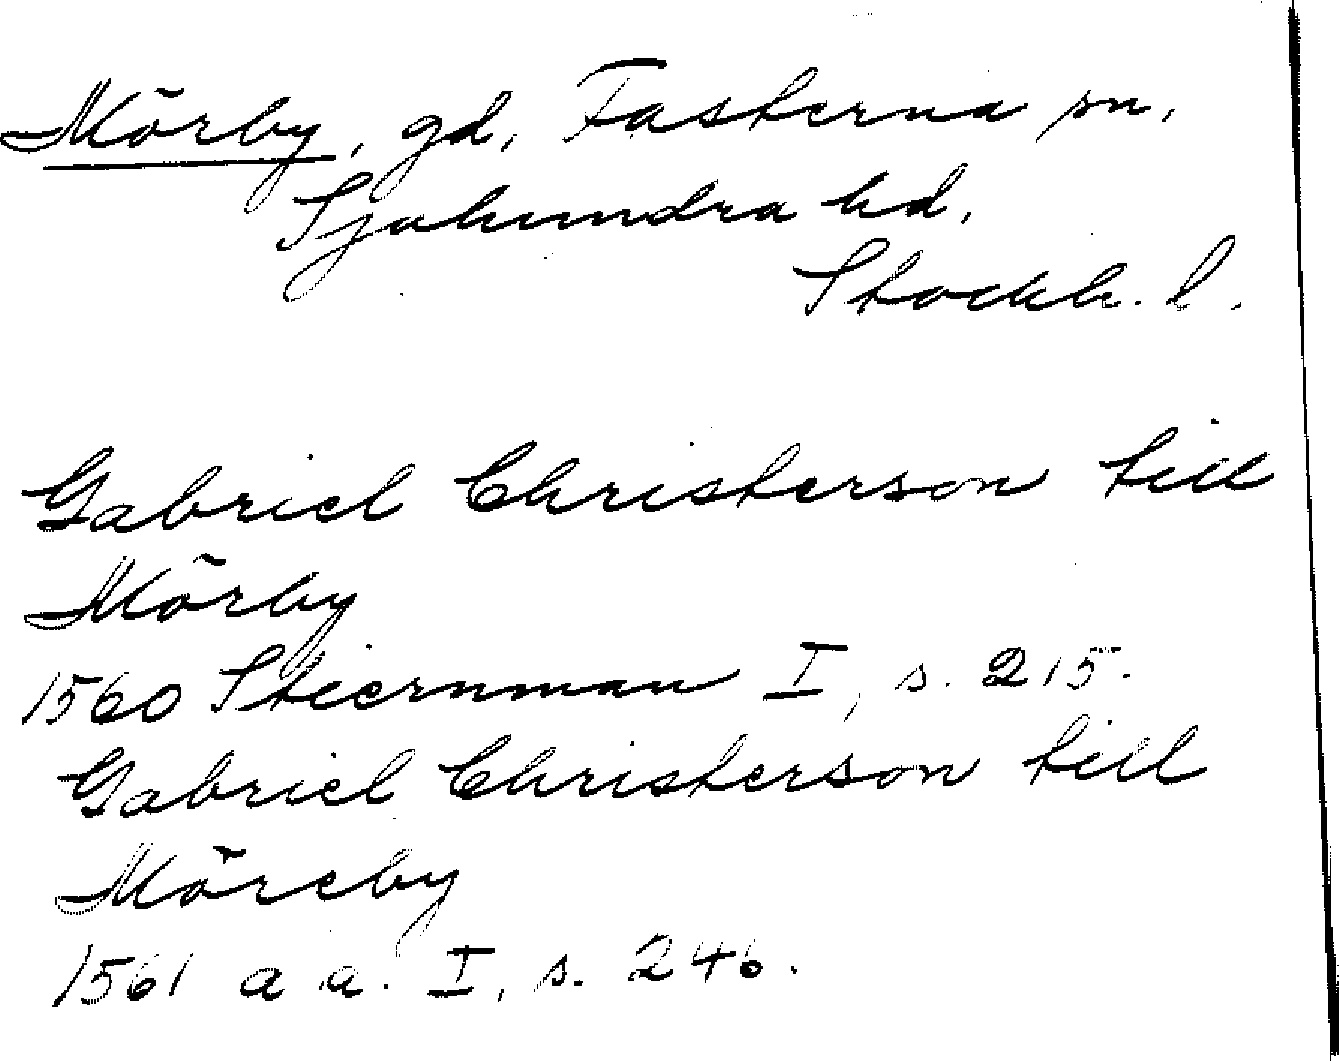 Mörby, gd, Fasterna sn,
Sjuhundra hd,
Stockh. l.
Gabriel Christerson till
Mörby
1560 Stiernman I, s. 215.
Gabriel Christerson till
Möreby
1561 a a. I, s. 246.